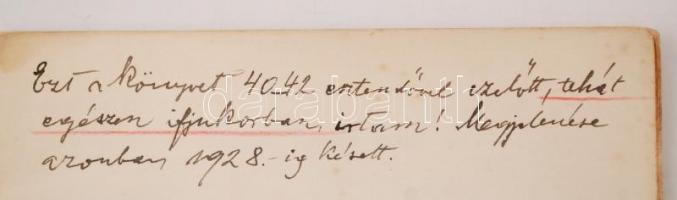 Ezt a könyvet 40.42 esztendővel ezelőtt, tehát
egészen ifjukorban, irtam! Megjelenése
azonban 1928.-ig késett.
darabanth